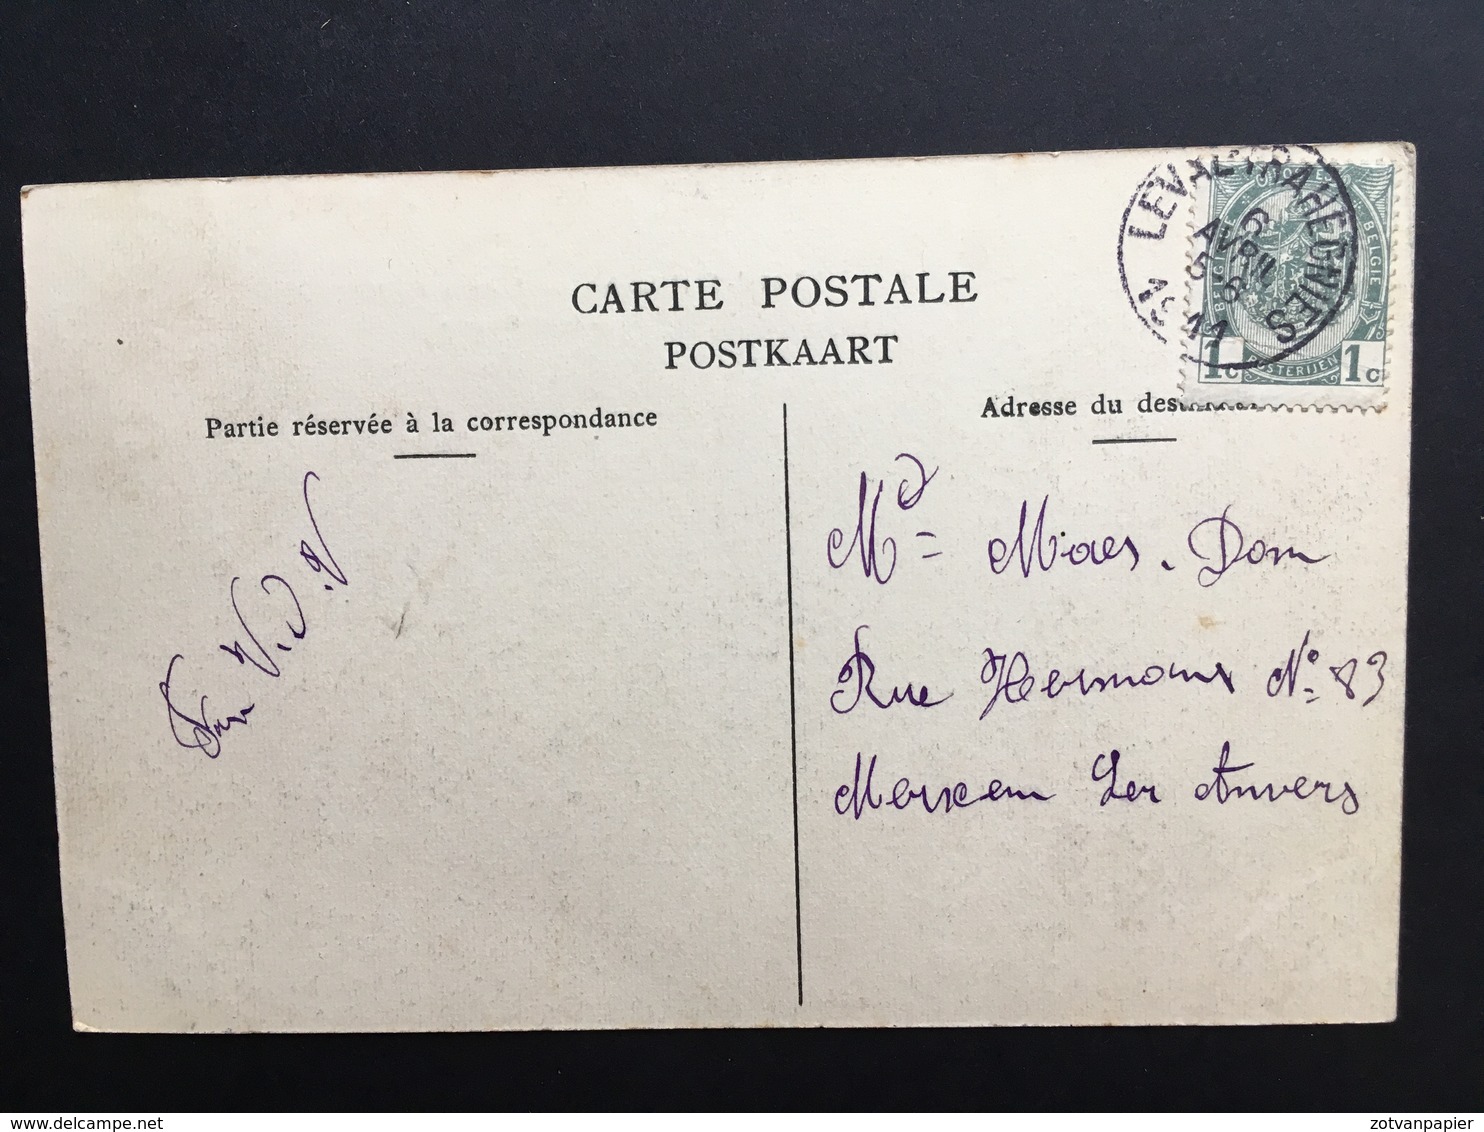 CARTE POSTALE
POSTKAART
Partie réservée à la correspondance
Adresse du
LEVAL-TRAHEGNIES
6
AVRIL
5-6
1911
BELGIE
POSTERIJEN
1c 1c
Md = Maes. Dom
Rue Hermans No. 83
Merxem Lez Anvers
V. D. V
zotvanpapier